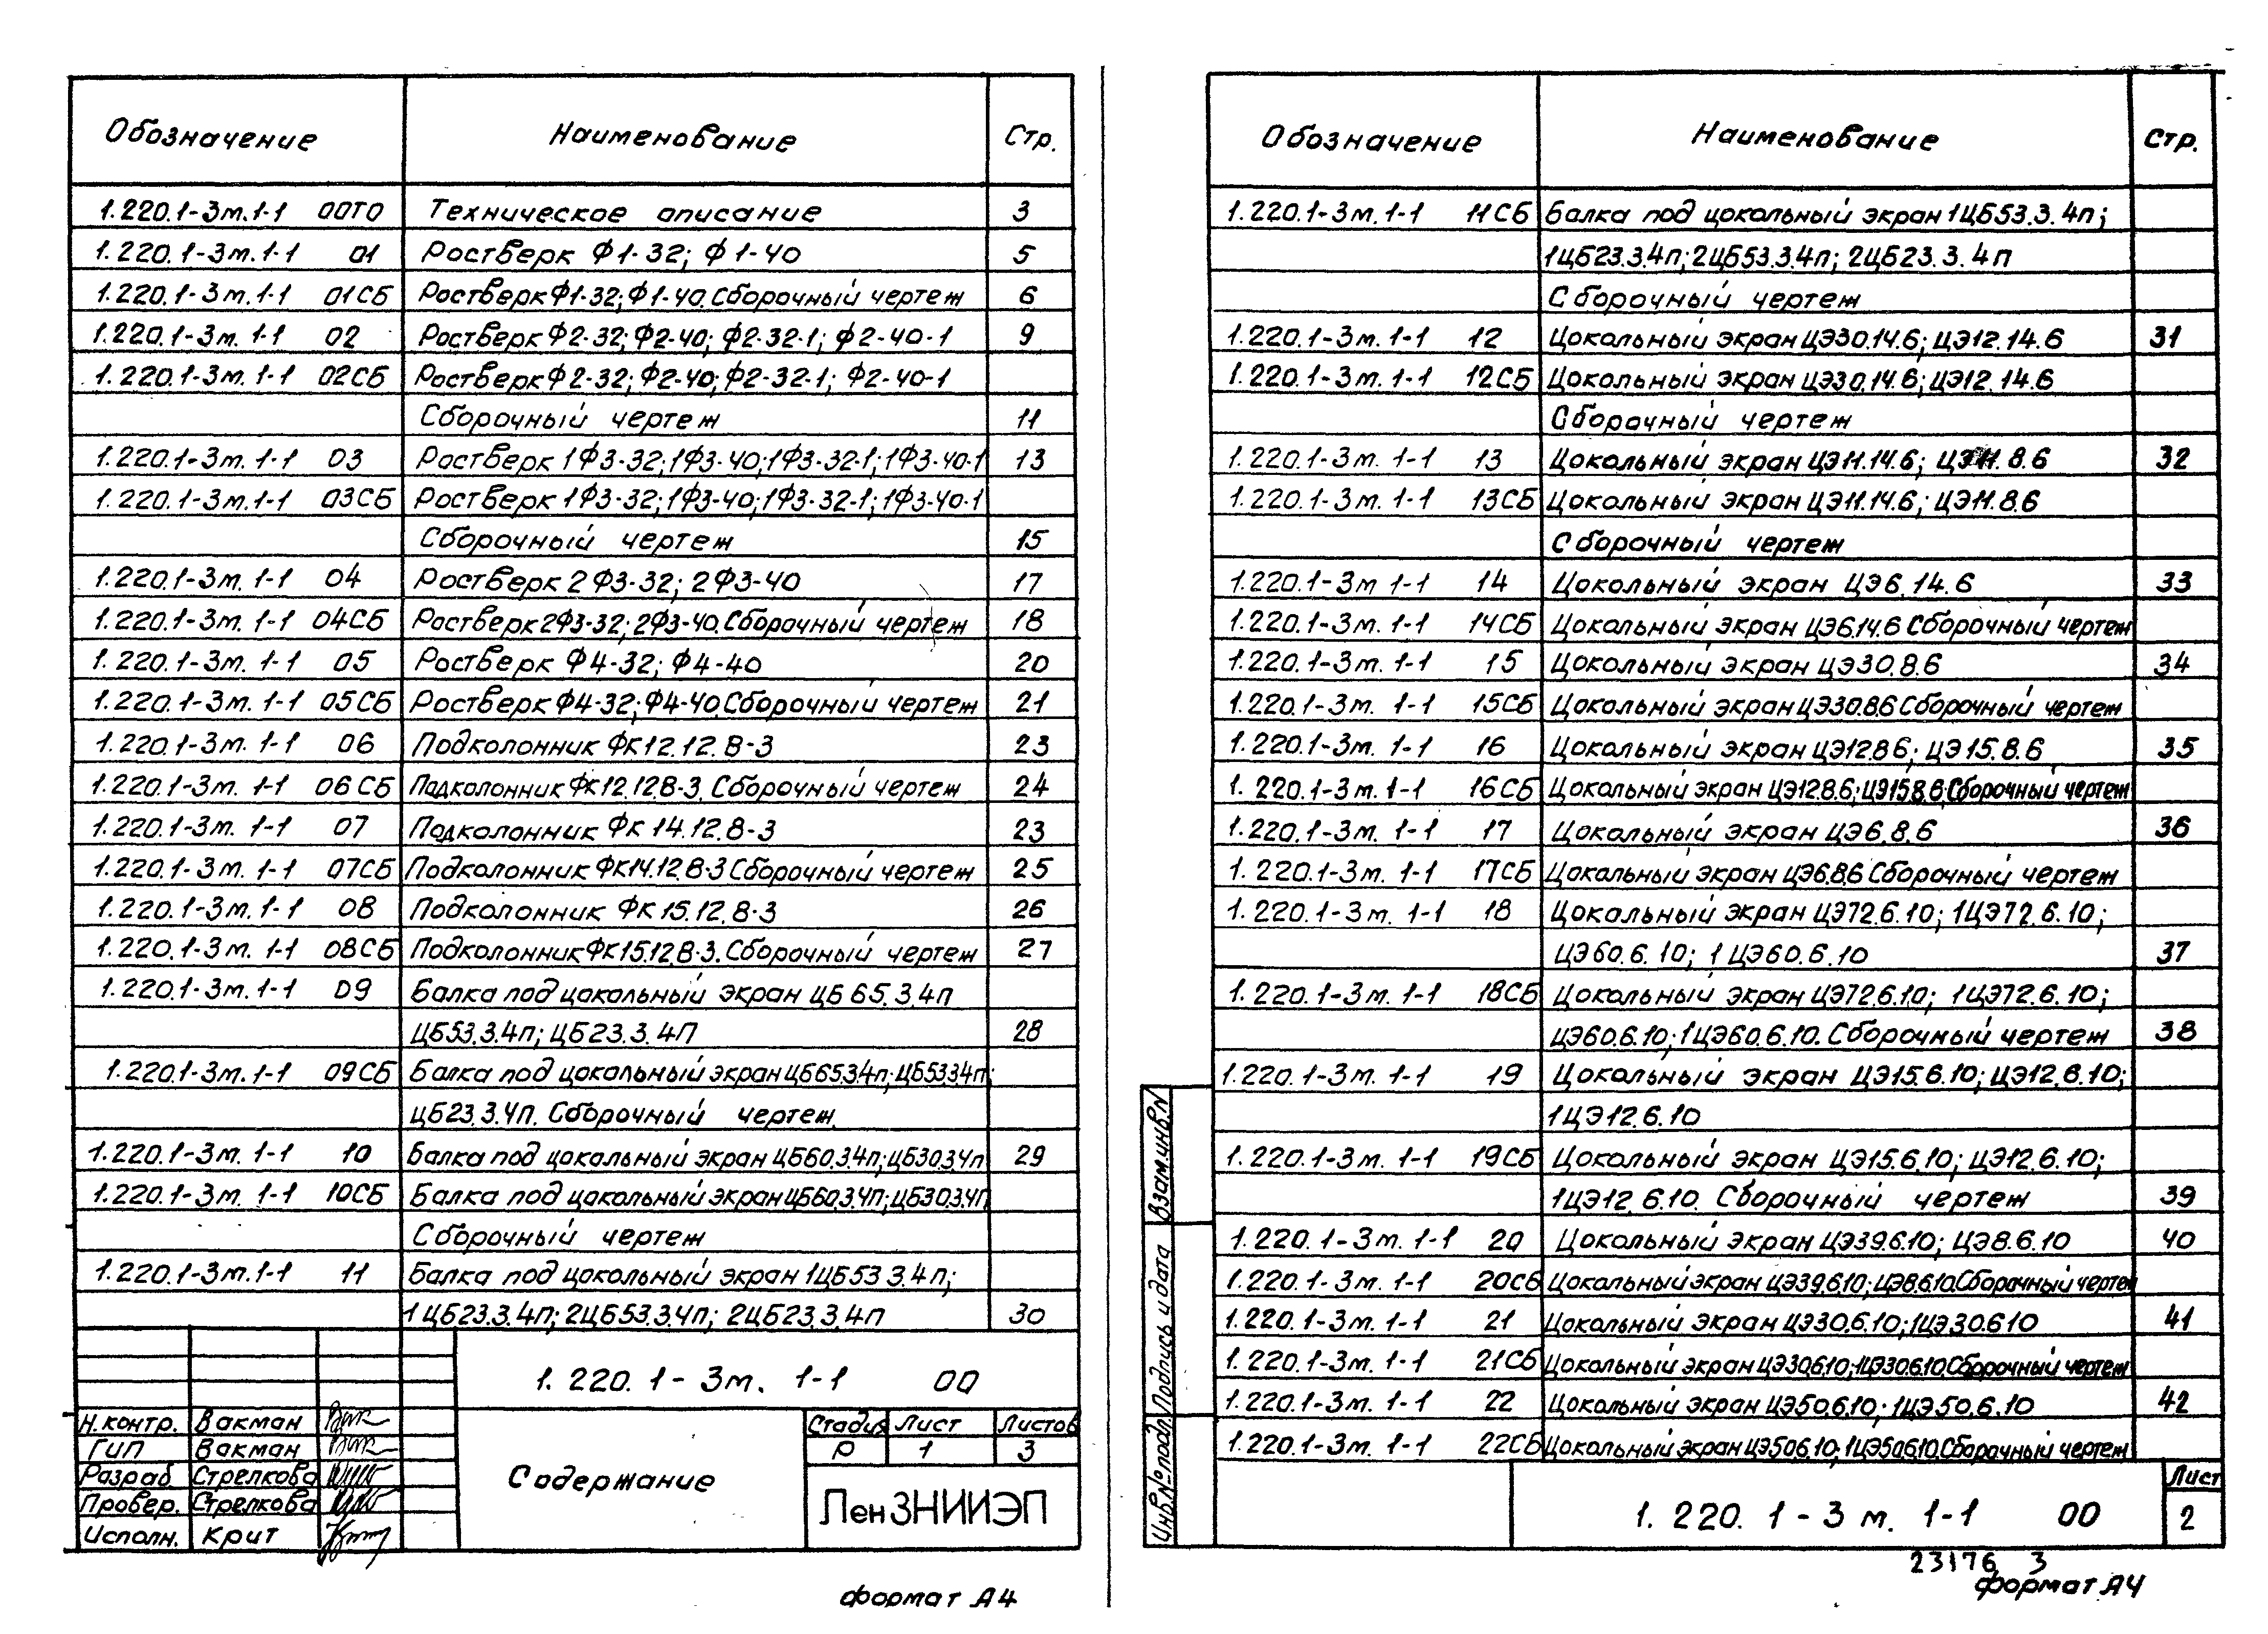 Обозначение Наименование Стр.
1.220.1-3м.1-1 00ТО Техническое описание 3
1.220.1-3м.1-1 01 Ростверк Ф1-32; Ф1-40 5
1.220.1-3м.1-1 01СБ Ростверк Ф1-32; Ф1-40. Сборочный чертеж 6
1.220.1-3м.1-1 02 Ростверк Ф2-32; Ф2-40; Ф2-32-1; Ф2-40-1 9
1.220.1-3м.1-1 02СБ Ростверк Ф2-32; Ф2-40; Ф2-32-1; Ф2-40-1
Сборочный чертеж 11
1.220.1-3м.1-1 03 Ростверк 1Ф3-32; 1Ф3-40; 1Ф3-32-1; 1Ф3-40-1 13
1.220.1-3м.1-1 03СБ Ростверк 1Ф3-32; 1Ф3-40; 1Ф3-32-1; 1Ф3-40-1
Сборочный чертеж 15
1.220.1-3м.1-1 04 Ростверк 2Ф3-32; 2Ф3-40 17
1.220.1-3м.1-1 04СБ Ростверк 2Ф3-32; 2Ф3-40. Сборочный чертеж 18
1.220.1-3м.1-1 05 Ростверк Ф4-32; Ф4-40 20
1.220.1-3м.1-1 05СБ Ростверк Ф4-32; Ф4-40. Сборочный чертеж 21
1.220.1-3м.1-1 06 Подколонник ФК12.12.8-3 23
1.220.1-3м.1-1 06СБ Подколонник ФК12.12.8-3. Сборочный чертеж 24
1.220.1-3м.1-1 07 Подколонник ФК14.12.8-3 23
1.220.1-3м.1-1 07СБ Подколонник ФК14.12.8-3 Сборочный чертеж 25
1.220.1-3м.1-1 08 Подколонник ФК15.12.8-3 26
1.220.1-3м.1-1 08СБ Подколонник ФК15.12.8-3. Сборочный чертеж 27
1.220.1-3м.1-1 09 Балка под цокольный экран ЦБ65.3.4п
ЦБ53.3.4п; ЦБ23.3.4П 28
1.220.1-3м.1-1 09СБ Балка под цокольный экран ЦБ65.3.4п; ЦБ53.3.4п;
ЦБ23.3.4п. Сборочный чертеж
1.220.1-3м.1-1 10 Балка под цокольный экран ЦБ60.3.4п; ЦБ30.3.4п 29
1.220.1-3м.1-1 10СБ Балка под цокольный экран ЦБ60.3.4п; ЦБ30.3.4п
Сборочный чертеж
1.220.1-3м.1-1 11 Балка под цокольный экран 1ЦБ53.3.4п;
1ЦБ23.3.4п; 2ЦБ53.3.4п; 2ЦБ23.3.4п 30
1.220.1-3м.1-1 00
Н.контр. Вакман
ГИП Вакман
Разраб. Стрелкова
Провер. Стрелкова
Исполн. Крит
Содержание
Стадия Лист Листов
Р 1 3
ЛенЗНИИЭП
формат А4
Обозначение Наименование Стр.
1.220.1-3м.1-1 11СБ Балка под цокольный экран 1ЦБ53.3.4п;
1ЦБ23.3.4п; 2ЦБ53.3.4п; 2ЦБ23.3.4п
Сборочный чертеж
1.220.1-3м.1-1 12 Цокольный экран ЦЭ30.14.6; ЦЭ12.14.6 31
1.220.1-3м.1-1 12СБ Цокольный экран ЦЭ30.14.6; ЦЭ12.14.6
Сборочный чертеж
1.220.1-3м.1-1 13 Цокольный экран ЦЭ11.14.6; ЦЭ11.8.6 32
1.220.1-3м.1-1 13СБ Цокольный экран ЦЭ11.14.6; ЦЭ11.8.6
Сборочный чертеж
1.220.1-3м 1-1 14 Цокольный экран ЦЭ6.14.6 33
1.220.1-3м.1-1 14СБ Цокольный экран ЦЭ6.14.6 Сборочный чертеж
1.220.1-3м.1-1 15 Цокольный экран ЦЭ30.8.6 34
1.220.1-3м.1-1 15СБ Цокольный экран ЦЭ30.8.6 Сборочный чертеж
1.220.1-3м.1-1 16 Цокольный экран ЦЭ12.8.6; ЦЭ15.8.6 35
1.220.1-3м.1-1 16СБ Цокольный экран ЦЭ12.8.6; ЦЭ15.8.6. Сборочный чертеж
1.220.1-3м.1-1 17 Цокольный экран ЦЭ6.8.6 36
1.220.1-3м.1-1 17СБ Цокольный экран ЦЭ6.8.6 Сборочный чертеж
1.220.1-3м.1-1 18 Цокольный экран ЦЭ72.6.10; 1ЦЭ72.6.10;
ЦЭ60.6.10; 1ЦЭ60.6.10 37
1.220.1-3м.1-1 18СБ Цокольный экран ЦЭ72.6.10; 1ЦЭ72.6.10;
ЦЭ60.6.10; 1ЦЭ60.6.10. Сборочный чертеж 38
1.220.1-3м.1-1 19 Цокольный экран ЦЭ15.6.10; ЦЭ12.6.10;
1ЦЭ12.6.10
1.220.1-3м.1-1 19СБ Цокольный экран ЦЭ15.6.10; ЦЭ12.6.10;
1ЦЭ12.6.10. Сборочный чертеж 39
1.220.1-3м.1-1 20 Цокольный экран ЦЭ39.6.10; ЦЭ8.6.10 40
1.220.1-3м.1-1 20СБ Цокольный экран ЦЭ39.6.10; ЦЭ8.6.10. Сборочный чертеж
1.220.1-3м.1-1 21 Цокольный экран ЦЭ30.6.10; 1ЦЭ30.6.10 41
1.220.1-3м.1-1 21СБ Цокольный экран ЦЭ30.6.10; 1ЦЭ30.6.10. Сборочный чертеж
1.220.1-3м.1-1 22 Цокольный экран ЦЭ50.6.10; 1ЦЭ50.6.10 42
1.220.1-3м.1-1 22СБ Цокольный экран ЦЭ50.6.10; 1ЦЭ50.6.10. Сборочный чертеж
Взам.инв.N
Подпись и дата
Инв.№подл.
1.220.1-3м.1-1 00
Лист
2
23176 3
формат А4